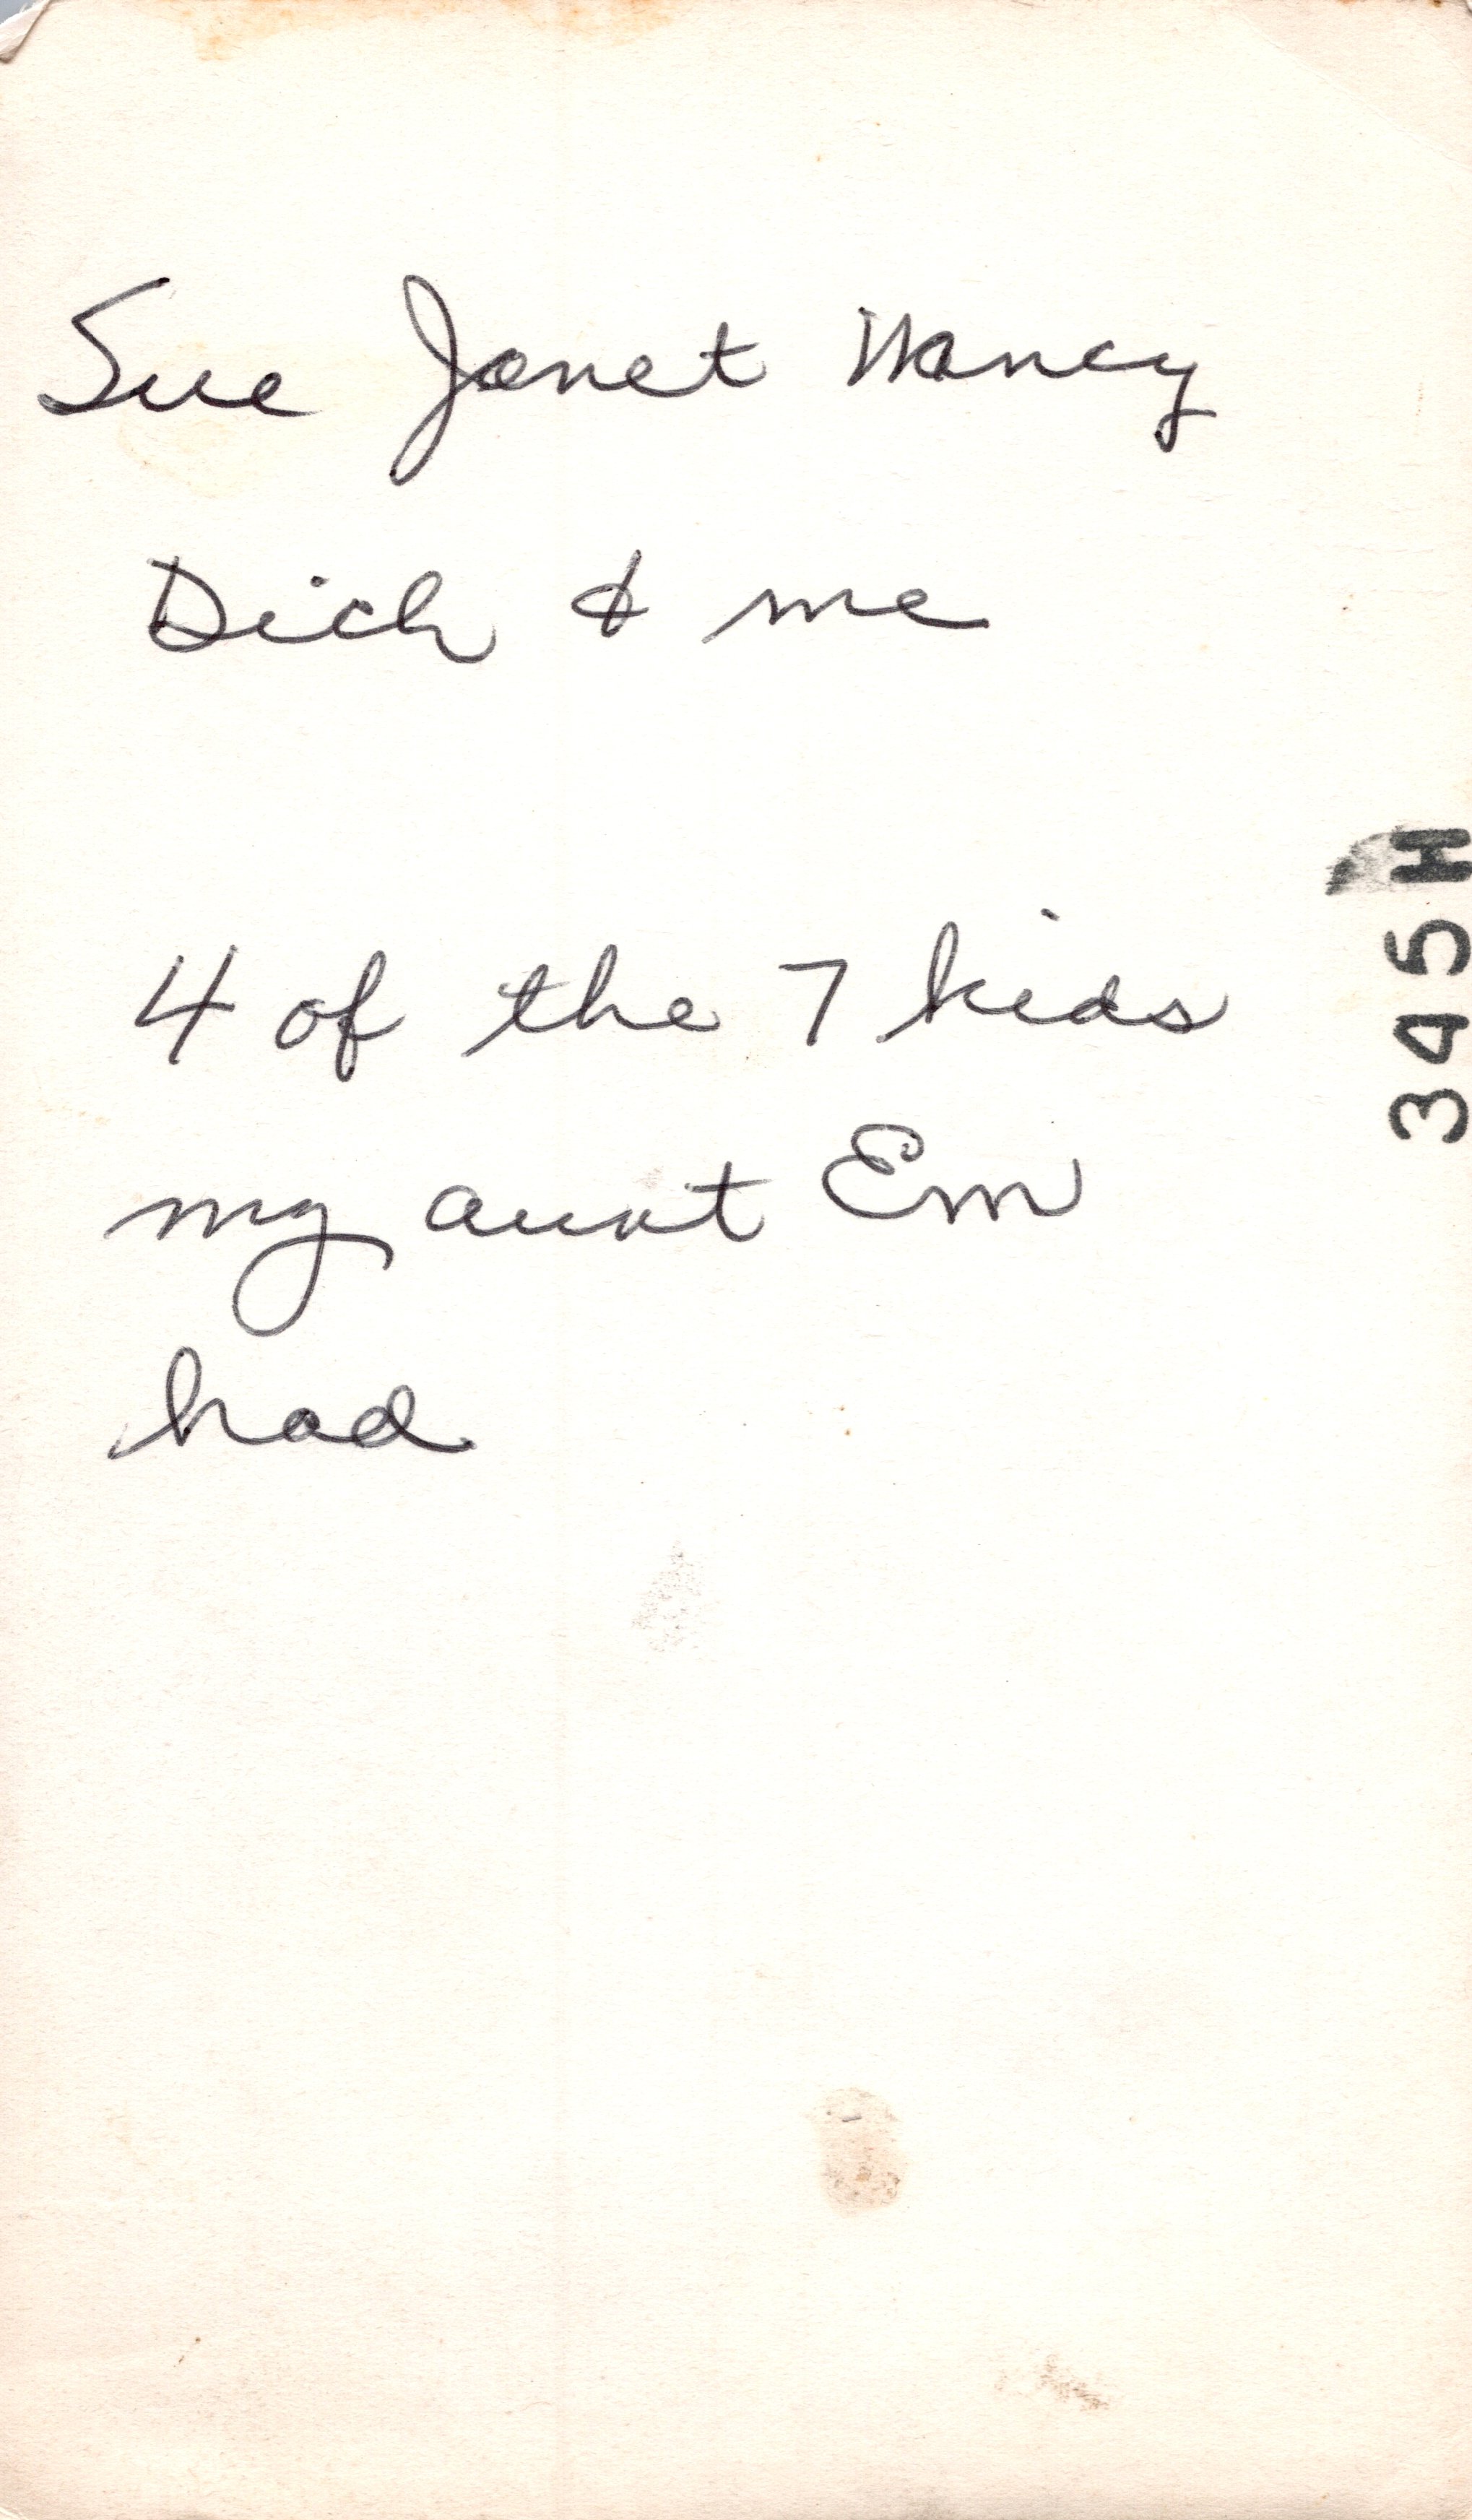 Sue Janet Nancy
Dick & me
4 of the 7 kids
my aunt Em
had
345H